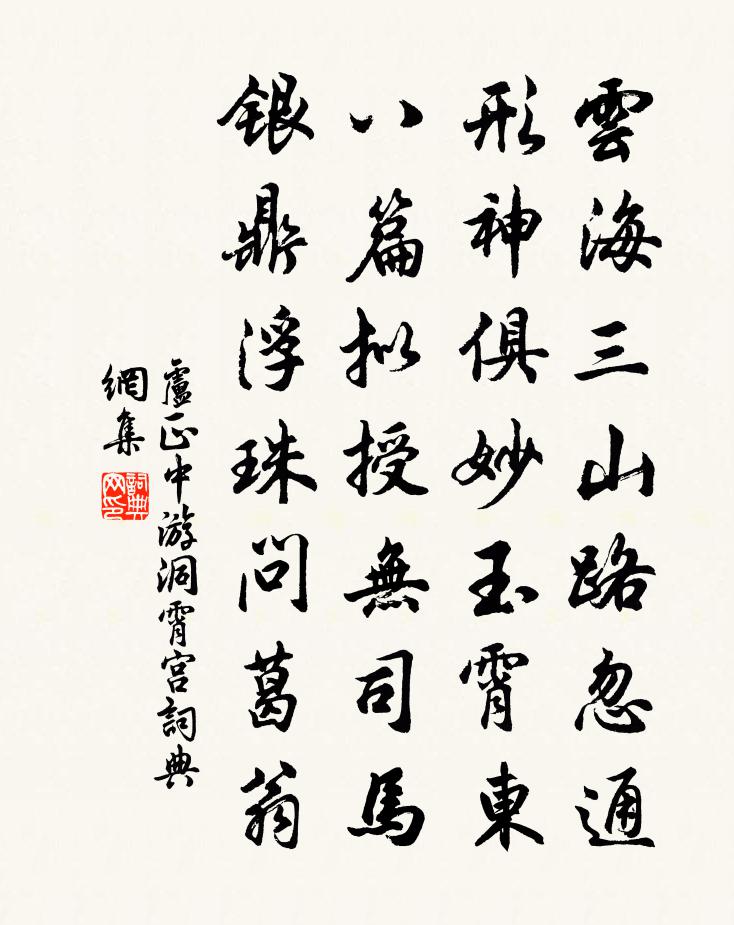 雲海三山路忽通
形神俱妙玉霄東
八篇拟授無司馬
銀鼎浮珠問葛翁
盧正中游洞霄宮詞典
網集
詞典
网印